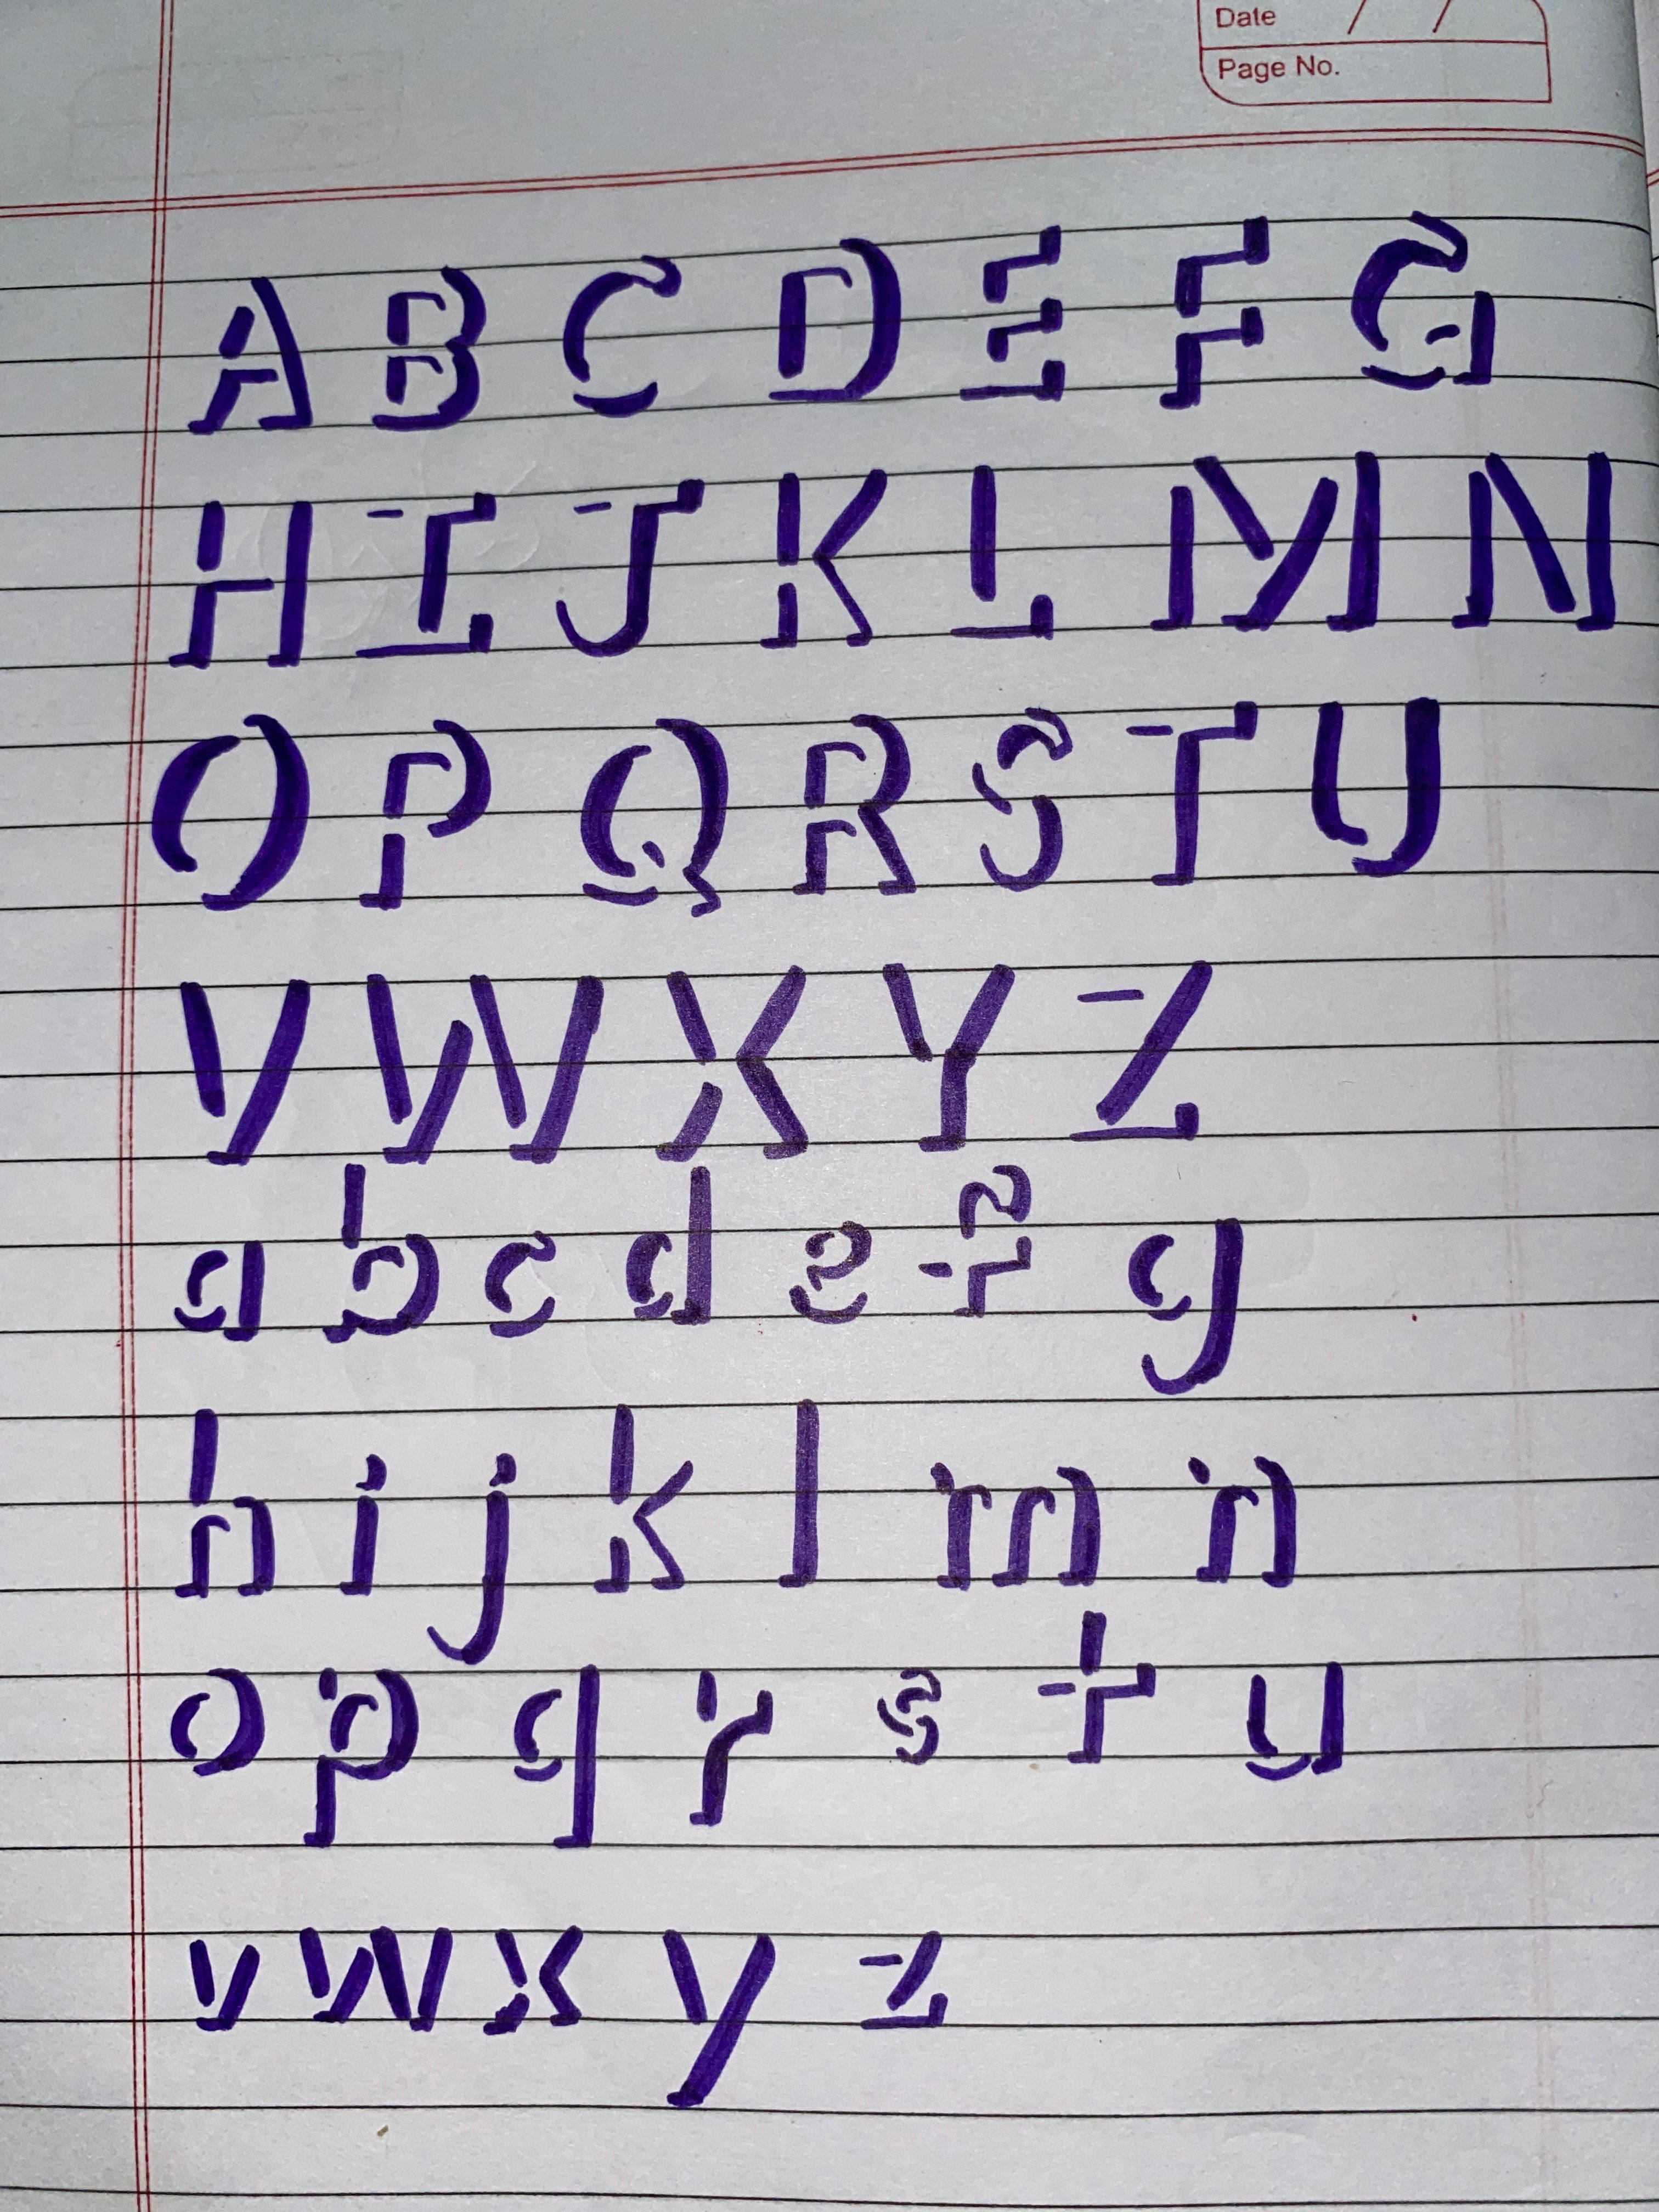 Date / /
Page No.
A B C D E F G
H I J K L M N
O P Q R S T U
V W X Y Z
a b c d e f g
h i j k l m n
o p q r s t u
v w x y z